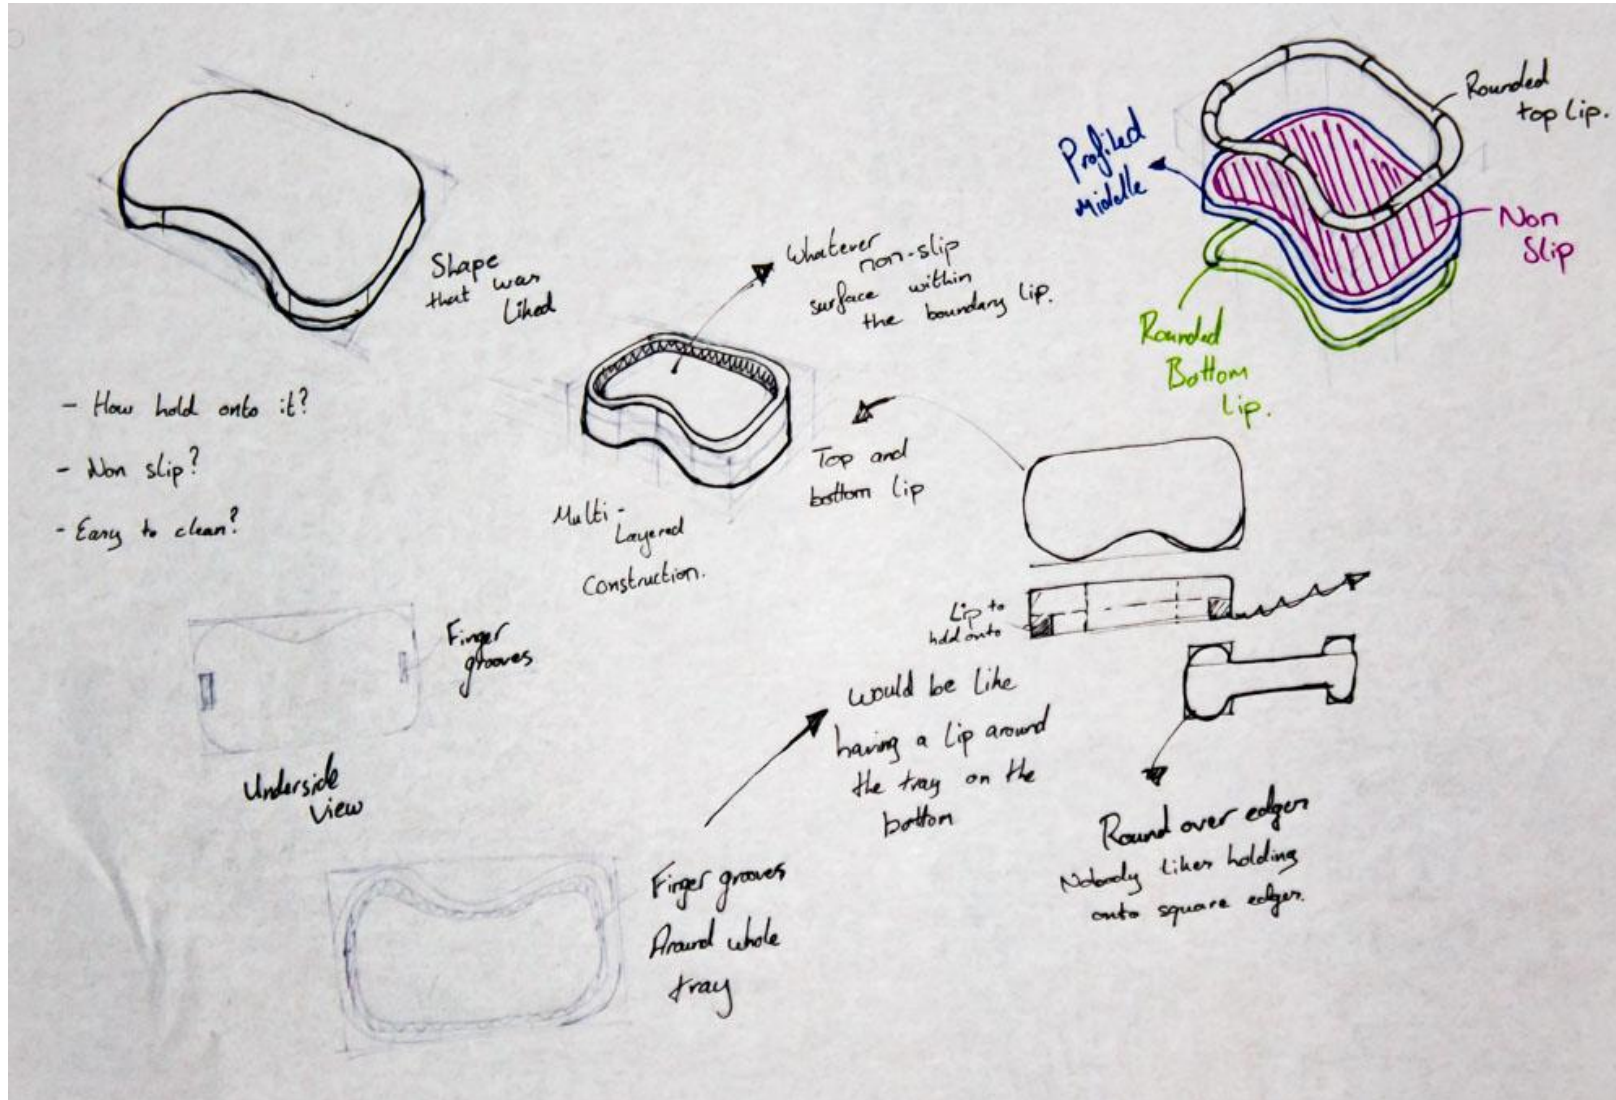 Shape
that was
Liked
- How hold onto it?
- Non slip?
- Easy to clean?
Whatever
non-slip
surface within
the boundary lip.
Multi-
Layered
Construction.
Top and
bottom lip
Profiled
Middle
Rounded
top lip.
Non
Slip
Rounded
Bottom
Lip.
Lip to
hold onto
Finger
grooves
Underside
View
would be like
having a lip around
the tray on the
bottom
Finger grooves
Around whole
tray
Round over edges
Nobody likes holding
onto square edges.